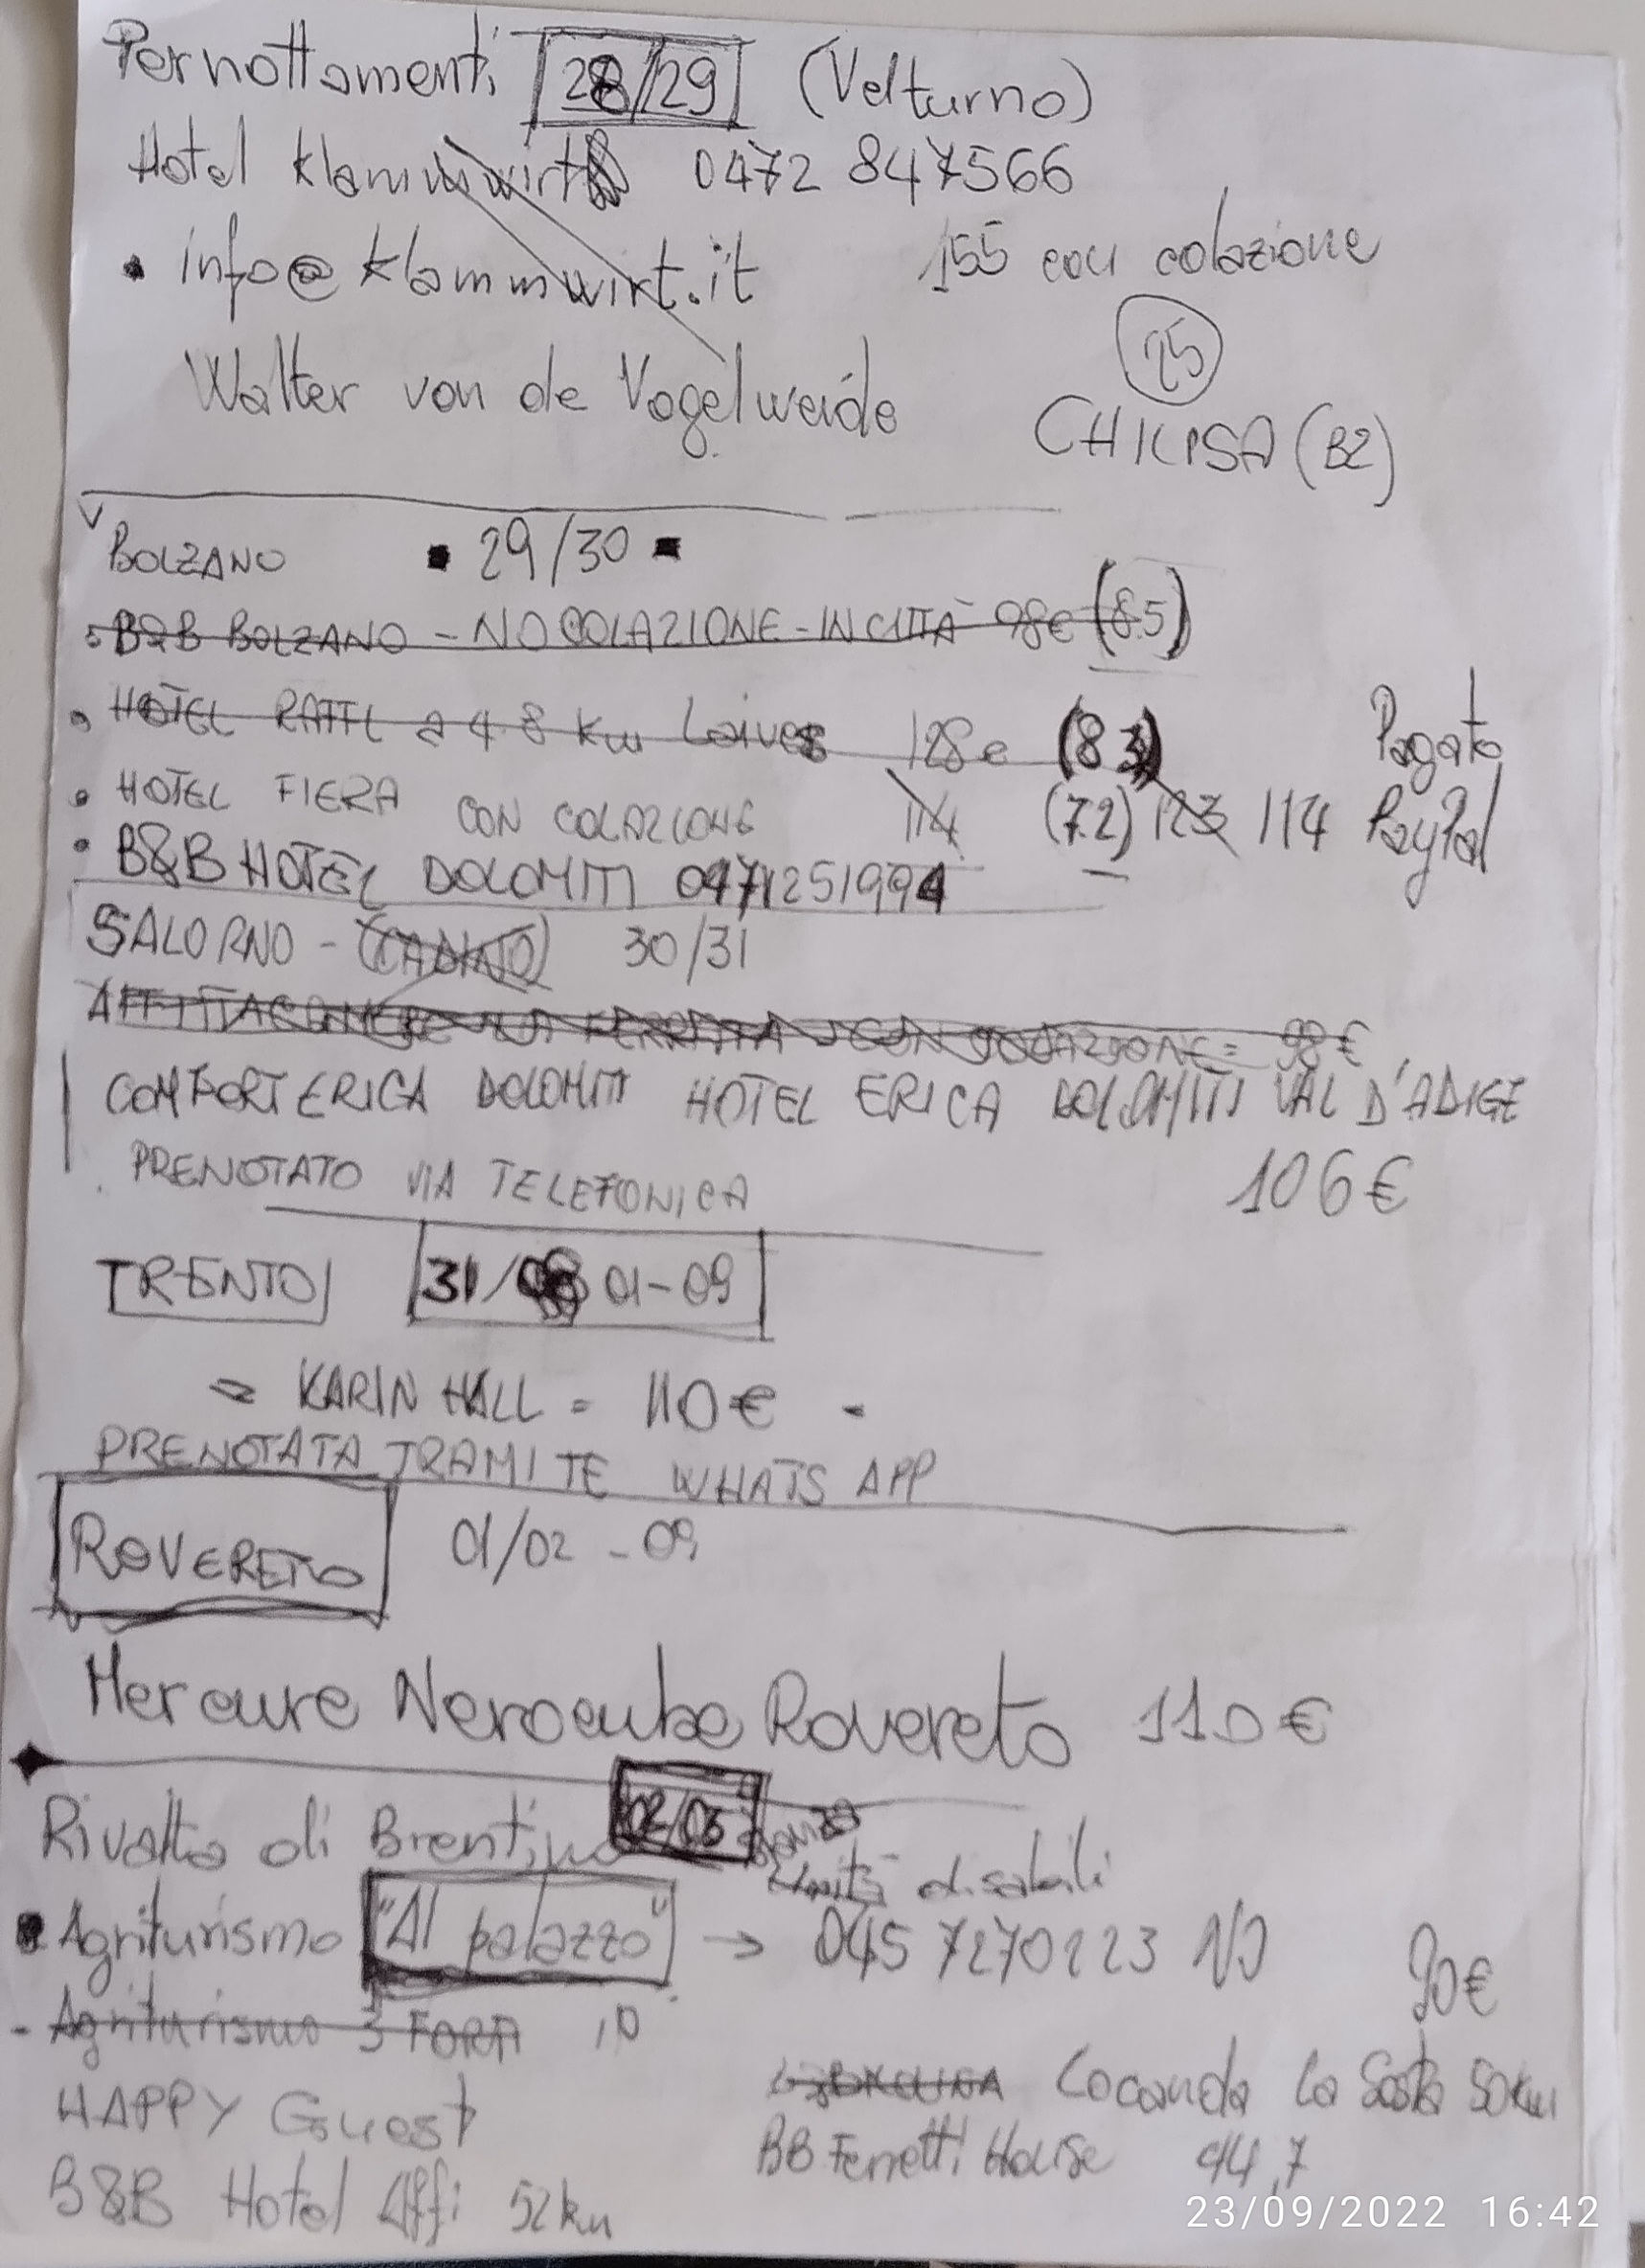 Pernottamenti 28/29 (Velturno)
Hotel Klammwirt 0472 847566
• info@klammwirt.it 155 con colazione
25
Walter von de Vogelweide CHIUSA (BZ)
BOLZANO • 29/30 •
B&B BOLZANO - NO COLAZIONE - IN CITTÀ 98€ (8.5)
• HOTEL RATTL a 4.8 Km Laives 128€ (83) Pagato
• HOTEL FIERA CON COLAZIONE 114 (7.2) 123 114 PayPal
• B&B HOTEL DOLOMITI 0471251994
SALORNO - (CADINO) 30/31
AFFITTACAMERE LA FERRATA - CON COLAZIONE = 98€
COMFORT ERICA DOLOMITI HOTEL ERICA DOLOMITI VAL D'ADIGE
PRENOTATO VIA TELEFONICA 106€
TRENTO 31/ 01-09
= KARIN HALL = 110€ -
PRENOTATA TRAMITE WHATS APP
ROVERETO 01/02 - 09
Mercure Nerocubo Rovereto 110€
Rivalta di Brentino 02/03
Unità disabili
• Agriturismo "Al palazzo" → 045 7270223 NO 90€
- Agriturismo 3 FORTI
Locanda la Sosta 50km
HAPPY Guest
BB Ferretti House 44,7
B&B Hotel Affi 52km
23/09/2022 16:42